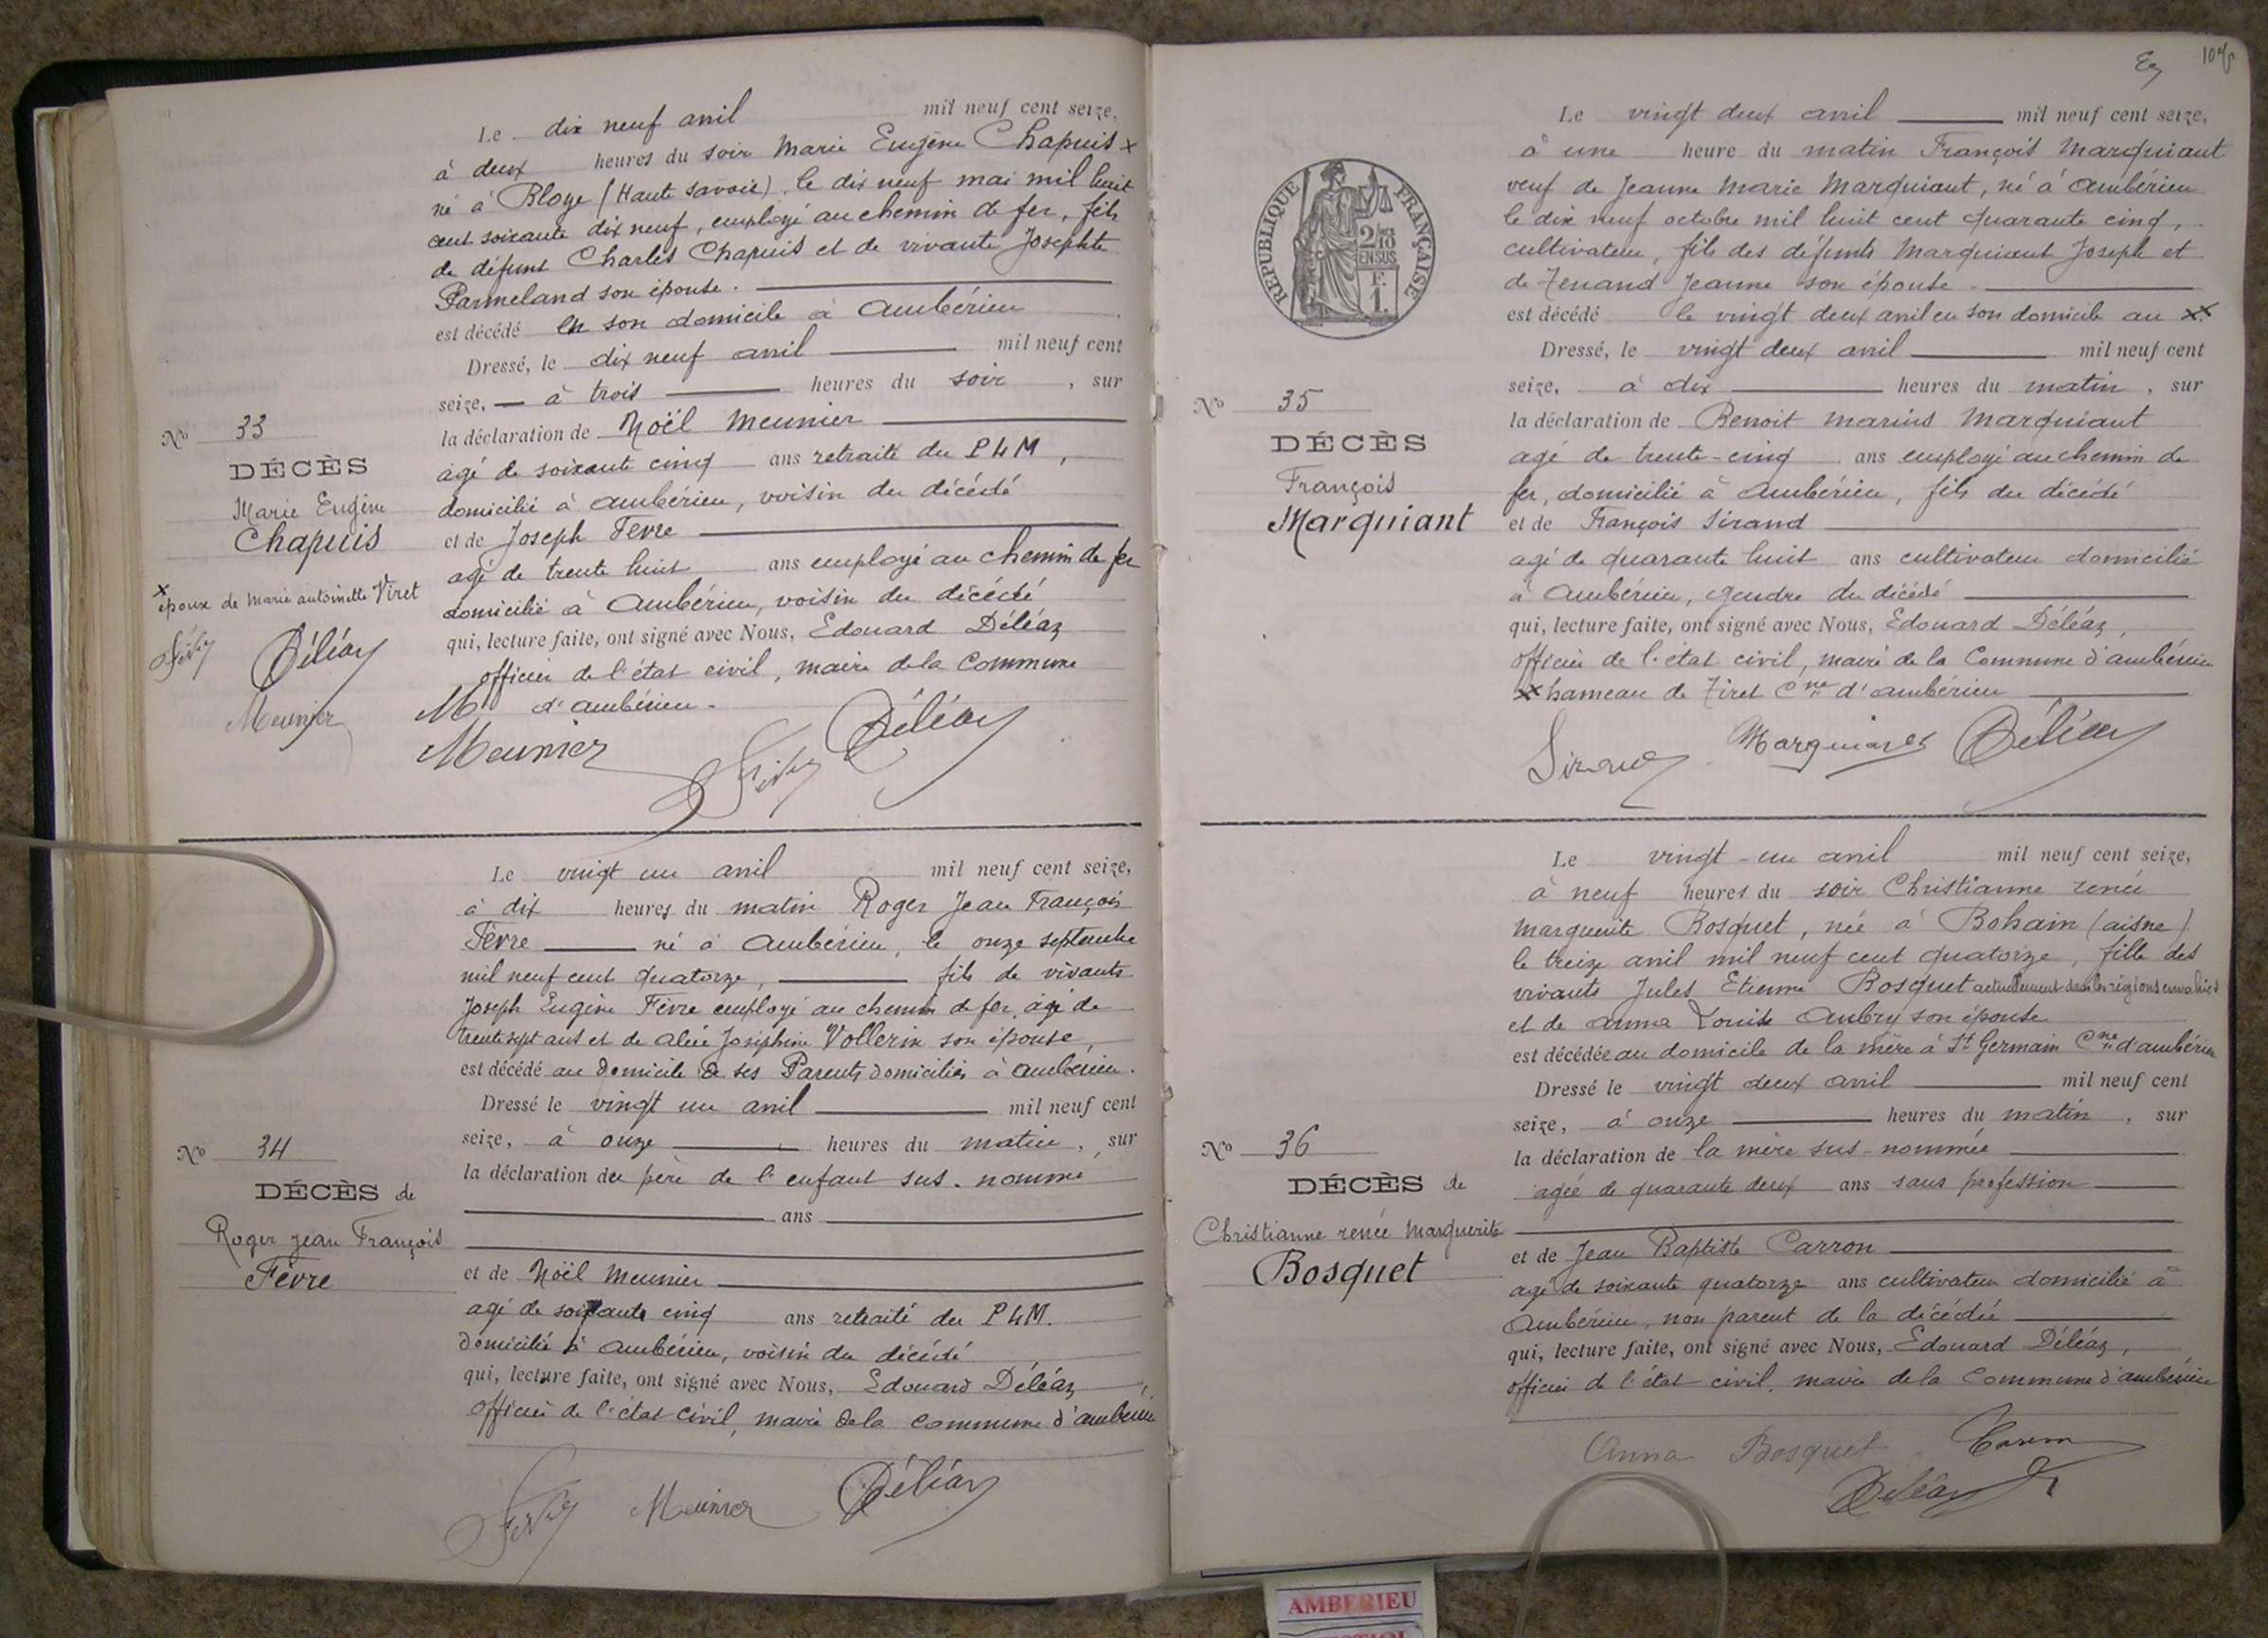 Le dix neuf avril mil neuf cent seize,
à deux heures du soir Marie Eugène Chapuis x
né à Bloye (Haute Savoie), le dix neuf mai mil huit
cent soixante dix neuf, employé au chemin de fer, fils
de défunt Charles Chapuis et de vivante Josephte
Parmeland son épouse.
est décédé en son domicile à Ambérieu
Dressé, le dix neuf avril mil neuf cent
seize, à trois heures du soir, sur
la déclaration de Noël Meunier
agé de soixante cinq ans retraité du PLM,
domicilié à Ambérieu, voisin du décédé
et de Joseph Fevre
agé de trente huit ans employé au chemin de fer
domicilié à Ambérieu, voisin du décédé
qui, lecture faite, ont signé avec Nous, Edouard Déléaz
officier de l'état civil, maire de la Commune
d'ambérieu.
M
Meunier Déléaz
No 33
DÉCÈS
Marie Eugène
Chapuis
x
époux de Marie antoinette Viret
Déléaz
Meunier
Le vingt un avril mil neuf cent seize,
à dix heures du matin Roger Jean François
Fèvre né à Ambérieu, le onze septembre
mil neuf cent quatorze, fils de vivants
Joseph Eugène Fèvre employé au chemin de fer, agé de
trente sept ans et de Josephine Vollerin son épouse,
est décédé au domicile de ses Parents domiciliés à Ambérieu.
Dressé le vingt un avril mil neuf cent
seize, à onze heures du matin, sur
la déclaration du père de l'enfant sus-nommé
ans
et de Noël Meunier
agé de soixante cinq ans retraité du PLM.
domicilié à Ambérieu, voisin du décédé
qui, lecture faite, ont signé avec Nous, Edouard Déléaz,
officier de l'état civil, maire de la commune d'ambérieu
Meunier Déléaz
No 34
DÉCÈS de
Roger Jean François
Fèvre
Le vingt deux avril mil neuf cent seize,
à une heure du matin François Marquiant
veuf de Jeanne Marie Marquiant, né à Ambérieu
le dix neuf octobre mil huit cent quarante cinq,
cultivateur, fils des défunts Marquiant Joseph et
de Jeanne son épouse.
est décédé le vingt deux avril en son domicile au xx
Dressé, le vingt deux avril mil neuf cent
seize, à dix heures du matin, sur
la déclaration de Benoit Marius Marquiant
agé de trente-cinq ans employé au chemin de
fer, domicilié à Ambérieu, fils du décédé
et de François Sirand
agé de quarante huit ans cultivateur domicilié
à Ambérieu, gendre du décédé
qui, lecture faite, ont signé avec Nous, Edouard Déléaz,
officier de l'état civil, maire de la Commune d'ambérieu
xx hameau de Tiret Cne d'ambérieu
Sirand Marquiant Déléaz
RÉPUBLIQUE FRANÇAISE
2/10
EN SUS
F.
1.
No 35
DÉCÈS
François
Marquiant
Le vingt-un avril mil neuf cent seize,
à neuf heures du soir Christianne renée
Marguerite Bosquet, née à Bohain (aisne)
le treize avril mil neuf cent quatorze, fille des
vivants Jules Etienne Bosquet actuellement dans les régions envahies
et de Anna Louise Aubry son épouse
est décédée au domicile de la mère à St Germain Cne d'ambérieu
Dressé le vingt deux avril mil neuf cent
seize, à onze heures du matin, sur
la déclaration de la mère sus-nommée
agée de quarante deux ans sans profession
et de Jean Baptiste Carron
agé de soixante quatorze ans cultivateur domicilié à
Ambérieu, non parent de la décédée
qui, lecture faite, ont signé avec Nous, Edouard Déléaz,
officier de l'état civil, maire de la Commune d'ambérieu
Anna Bosquet Carron
Déléaz
No 36
DÉCÈS de
Christianne renée Marguerite
Bosquet
AMBERIEU